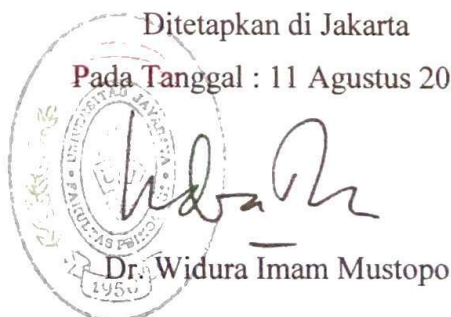 Ditetapkan di Jakarta
Pada Tanggal : 11 Agustus 20
UNIVERSITAS JAYABAYA
1958
Dr. Widura Imam Mustopo